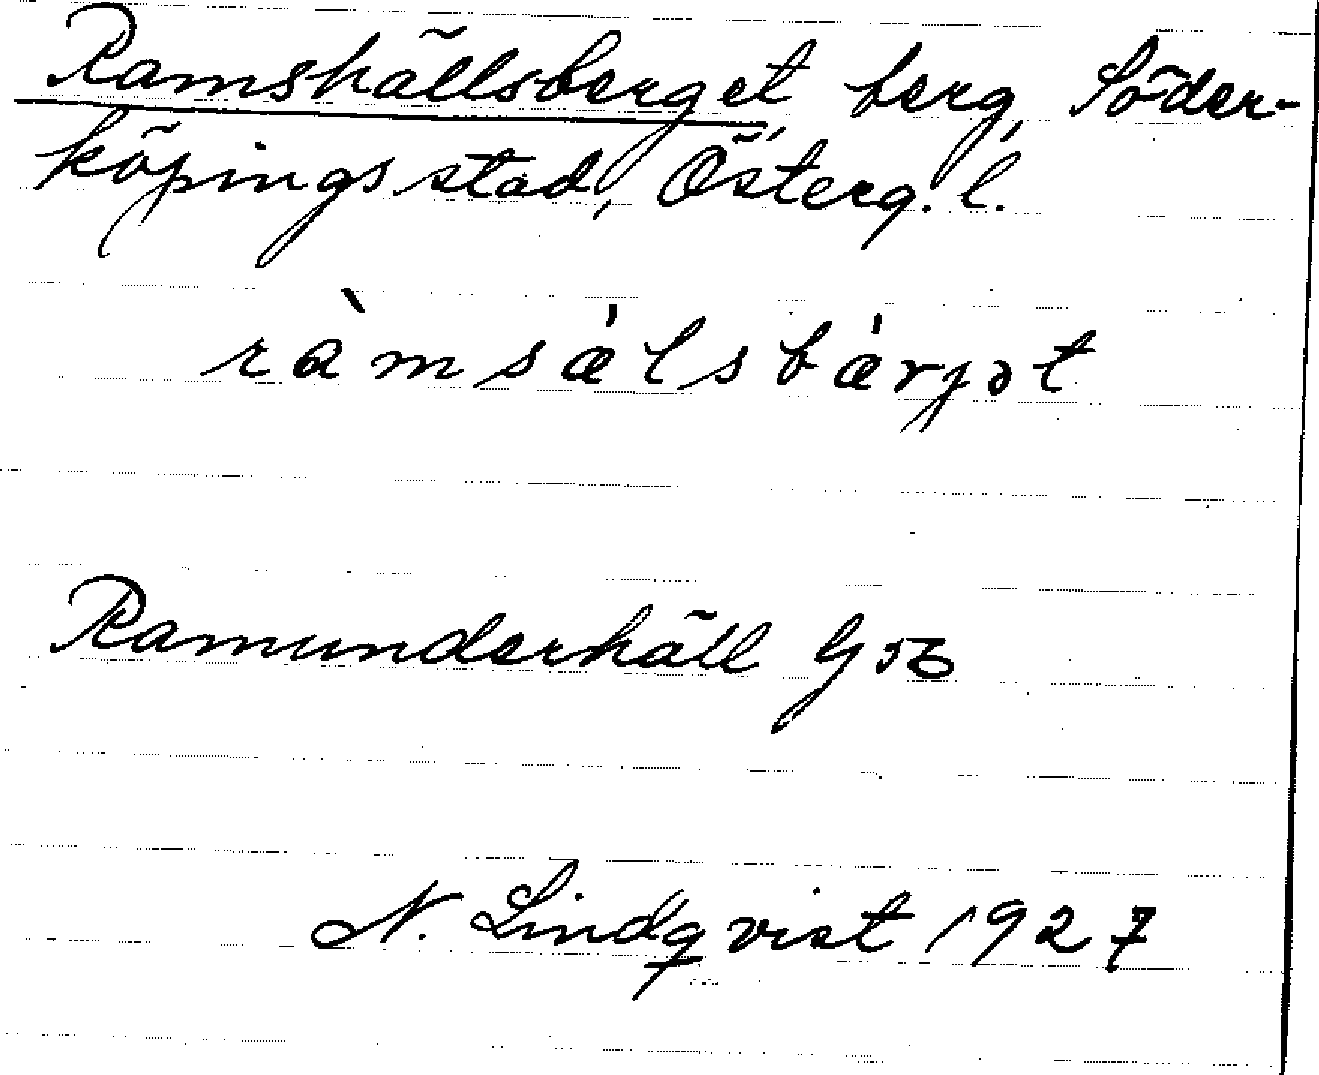 Ramshällsberget berg, Söder-
köpings stad, Österg. l.
ràmsæ̀lsbæ̀rjət
Ramunderhäll G 56
N. Lindqvist 1927